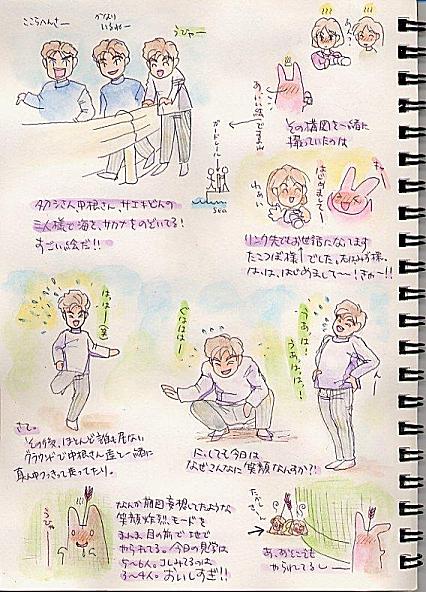 ここらへんさー
かなり
いるねー
うひゃー
あん?
あ、いい絵ですね
ガードレール
sea
その構図を一緒に
撮っていたのは
はじめまして〜
わぁい
タカシさん、中根さん、サエキどんの
三人様で海を、サカナをのぞいてる!
すごい絵だ!!
リンク先でもお世話になってます
たこつぼ様でした。
は、は、はじめまして〜〜!きゃ〜!!
はは〜(笑)
ぐははー
うあっは!
うあっはっはっ!
さて。
その後、ほとんど誰も居ない
グラウンドで中根さん達と一緒に
にしても今日は
なぜこんなに笑顔なんすか?!
うひゃ
なんか前回妄想してたような
笑顔炸烈モードを
まんま目の前で地で
やられてる。今日の見学は
5〜6人。コレみてるのは
3〜4人。おいしすぎ!!
たかし
さーん
あ、おとこにも
やられてるし